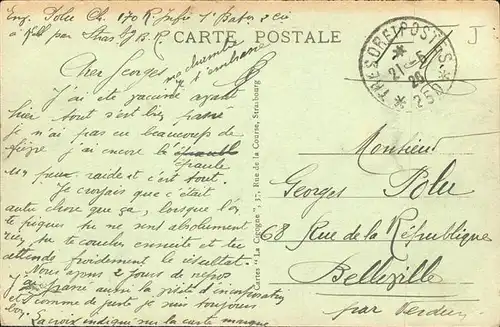 Eng. Polu Ch. 170 R. Infie 1e Baton 2 Cie
à Kehl par Strasbg B.R.
CARTE POSTALE
ma chambre
Cher Georges je t'embrasse
J'ai été vacciné avant
hier tout s'est bien passé
je n'ai pas eu beaucoup de
fièvre j'ai encore l'épaule
un peu raide et c'est tout.
Je croyais que c'était
autre chose que ça, lorsque l'on
te piques tu ne sens absolument
rien tu te couches ensuite et tu
attends froidement le résultat.
Nous avons 2 jours de repos
J'ai passé aussi la visite d'incorporation
et comme de juste je suis toujours
bon.
La croix indique sur la carte marque
Cartes "La Cigogne", 37, Rue de la Course, Strasbourg
TRESOR ET POSTES
21 - 5
20
* 250 *
J
Monsieur
Georges Polu
68 Rue de la République
Belleville
par Verdun